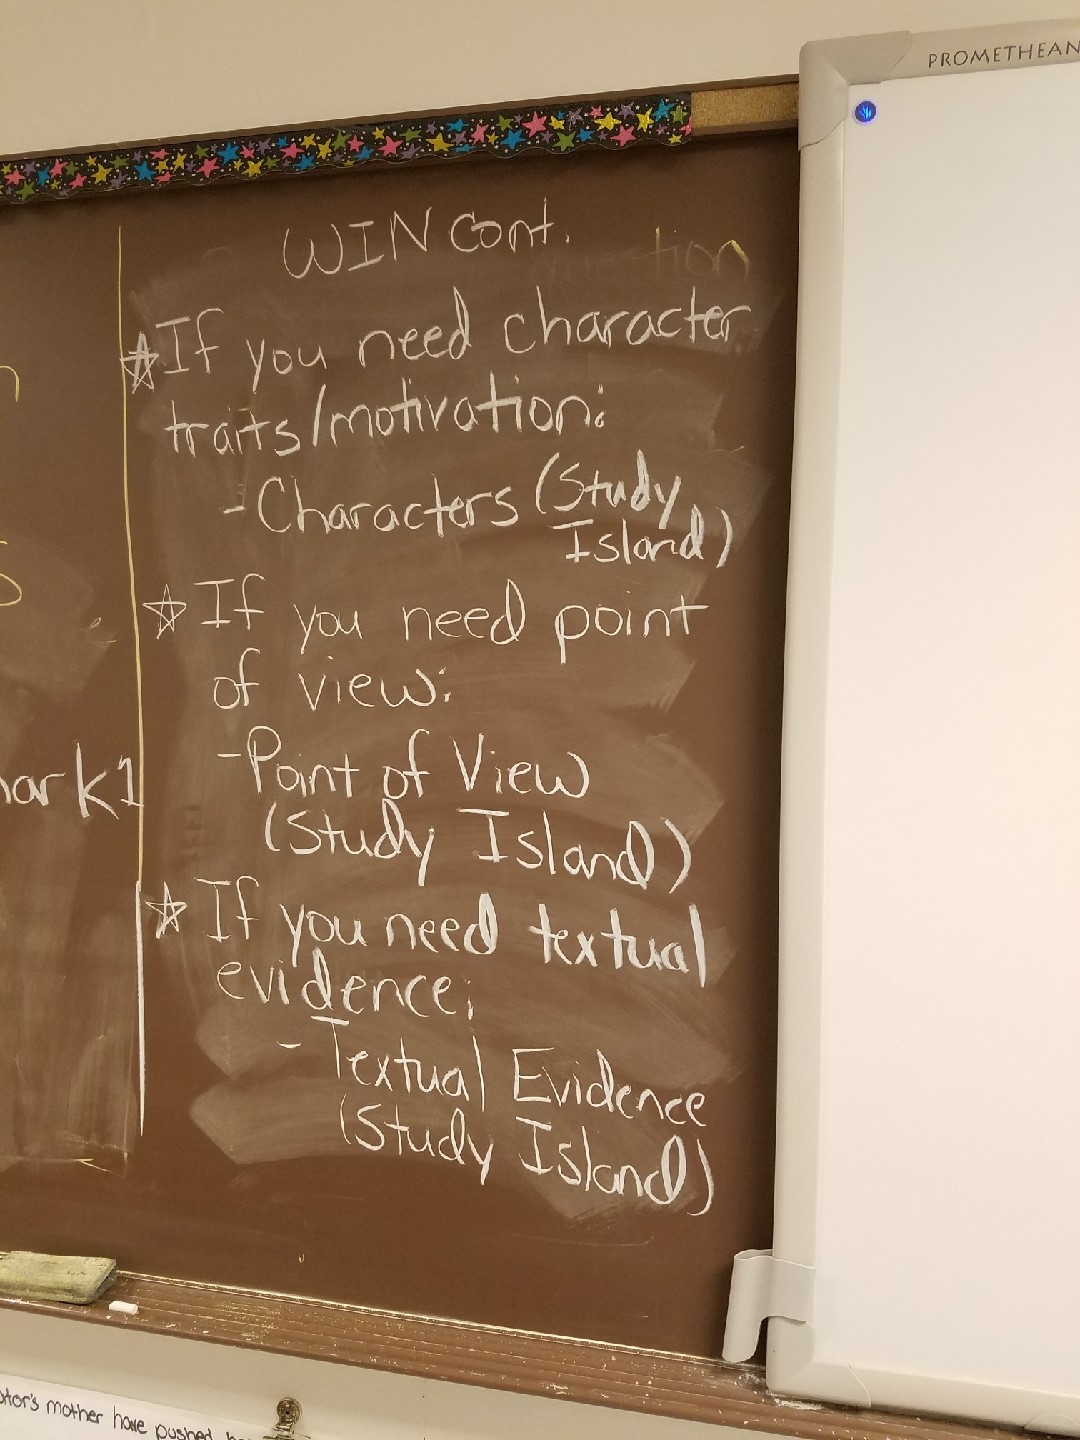 PROMETHEAN
WIN cont.
☆If you need character
traits/motivation:
- Characters (Study
Island)
☆ If you need point
of view:
- Point of View
(Study Island)
☆ If you need textual
evidence:
- Textual Evidence
(Study Island)
mother have pushed